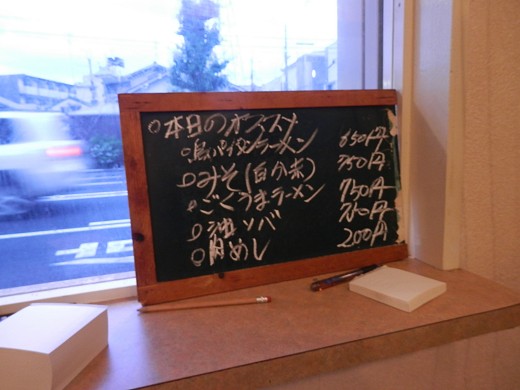 本日のオススメ
鳥パイタンラーメン 650円
みそ(自分来) 750円
ごくうまラーメン 750円
油ソバ 710円
肉めし 200円